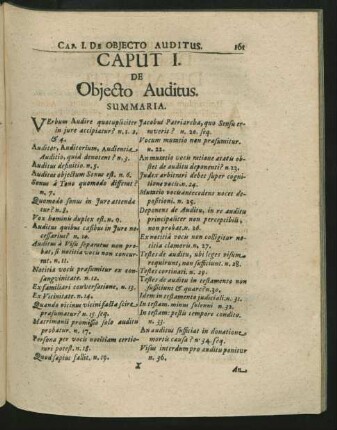 CAP. I. DE OBJECTO AUDITUS. 161
CAPUT I.
DE
Objecto Auditus.
SUMMARIA.
VErbum Audire quotupliciter
in jure accipiatur? n. 1. 2.
& 4.
Auditor, Auditorium, Audientia
Auditio, quid denotent? n. 3.
Auditus definitio. n. 5.
Auditus objectum Sonus est. n. 6.
Sonus à Tono quomodo differat?
n. 7.
Quomodo sonus in Jure attenda
tur? n. 8.
Vox hominis duplex est. n. 9.
Auditus quibus casibus in Jure ne-
cessarius? n. 10.
Auditus à Visu separatus non pro-
bat, si notitia vocis non concur-
rat. n. 11.
Notitia vocis præsumitur ex con-
sanguinitate. n. 12.
Ex familiari conversatione. n. 13.
Ex Vicinitate. n. 14.
Quando vicinus vicini facta scire
præsumatur? n. 15. seq.
Matrimonii promissio solo auditu
probatur. n. 17.
Persona per vocis notitiam certio-
rari potest. n. 18.
Quod sæpius fallit. n. 19.
Jacobus Patriarcha, quo Sensu er-
raverit? n. 20. seq.
Vocum mutatio non præsumitur.
n. 22.
An mutatio vocis ratione ætatis ob-
stet de auditu deponenti? n. 23.
Judex arbitrari debet super cogni-
tione vocis. n. 24.
Mutatio vocis antecedens nocet de-
positioni. n. 25.
Deponens de Auditu, in re auditu
principaliter non perceptibili,
non probat. n. 26.
Ex notitia vocis non colligitur no-
titia clamoris. n. 27.
Testes de auditu, ubi leges visum
requirunt, non sufficiunt. n. 28.
Testes cortinati. n. 29.
Testes de auditu in testamento non
sufficiunt & quare? n. 30.
Idem in testamento judiciali. n. 31.
In testam. minus solenni. n. 32.
In testam. pestis tempore condito.
n. 33.
An auditus sufficiat in donatione
mortis causa? n. 34. seq.
Visus interdum pro auditu ponitur
n. 36.
X
An